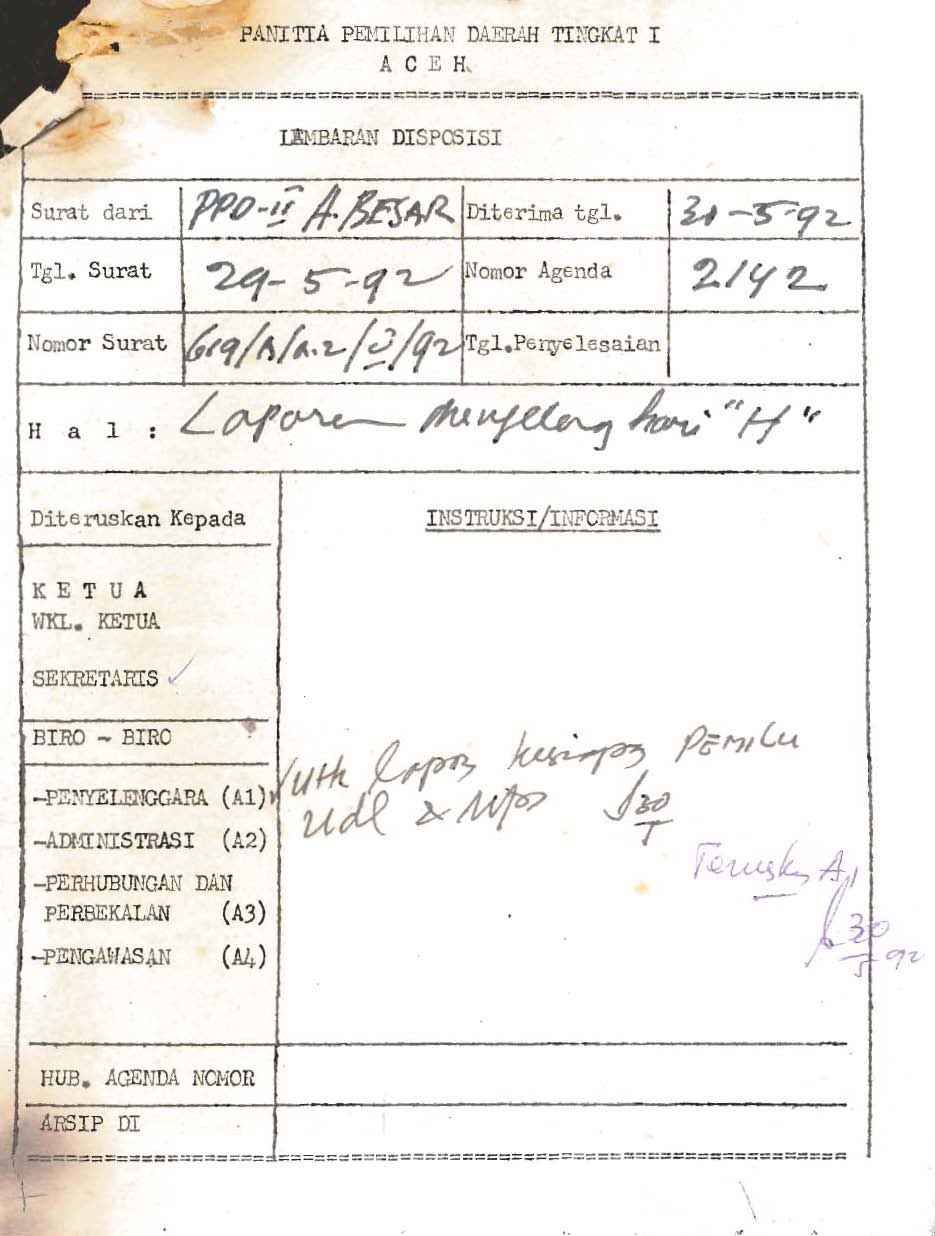 PANITIA PEMILIHAN DAERAH TINGKAT I
A C E H
LEMBARAN DISPOSISI
Surat dari PPD-II A.BESAR Diterima tgl. 30-5-92
Tgl. Surat 29-5-92 Nomor Agenda 2142
Nomor Surat 619/ /92 Tgl.Penyelesaian
H a l : Laporan menjelang hari "H"
Diteruskan Kepada INSTRUKSI/INFORMASI
K E T U A
WKL. KETUA
SEKRETARIS ✓
BIRO - BIRO
PEMILU
-PENYELENGGARA (A1) Utk
Udl
30
-ADMINISTRASI (A2)
-PERHUBUNGAN DAN
PERBEKALAN (A3)
Teruskan A1
30
5 92
-PENGAWASAN (A4)
HUB. AGENDA NOMOR
ARSIP DI